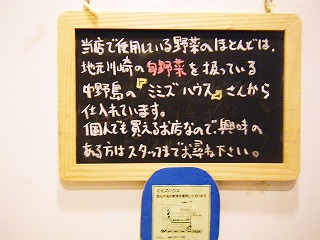 当店で使用している野菜のほとんどは、
地元川崎の旬野菜を扱っている
中野島の『ミミズハウス』さんから
仕入れています。
個人でも買えるお店なので、興味の
ある方はスタッフまでお尋ね下さい。
ミミズハウス